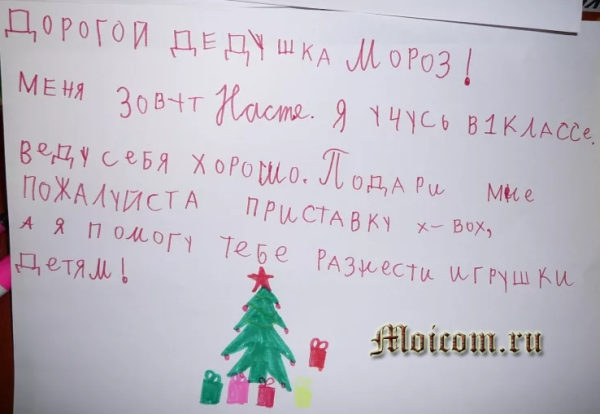 ДОРОГОЙ ДЕДУШКА МОРОЗ!
МЕНЯ ЗОВУТ Настя. Я УЧУСЬ В 1 КЛАССЕ.
ВЕДУ СЕБЯ ХОРОШО. ПОДАРИ МНЕ
ПОЖАЛУЙСТА ПРИСТАВКУ X-BOX,
А Я ПОМОГУ ТЕБЕ РАЗНЕСТИ ИГРУШКИ
ДЕТЯМ!
Moicom.ru